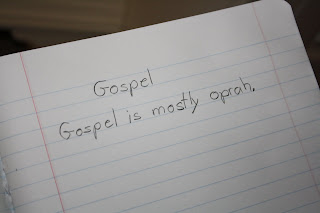 Gospel
Gospel is mostly oprah.